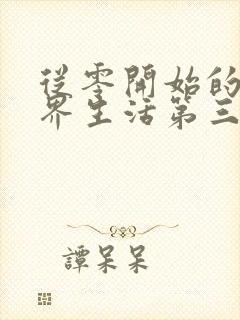 從零開始的
界生活第三
譚呆呆